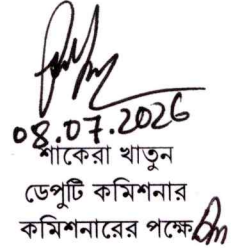 08.07.2026
শাকেরা খাতুন
ডেপুটি কমিশনার
কমিশনারের পক্ষে